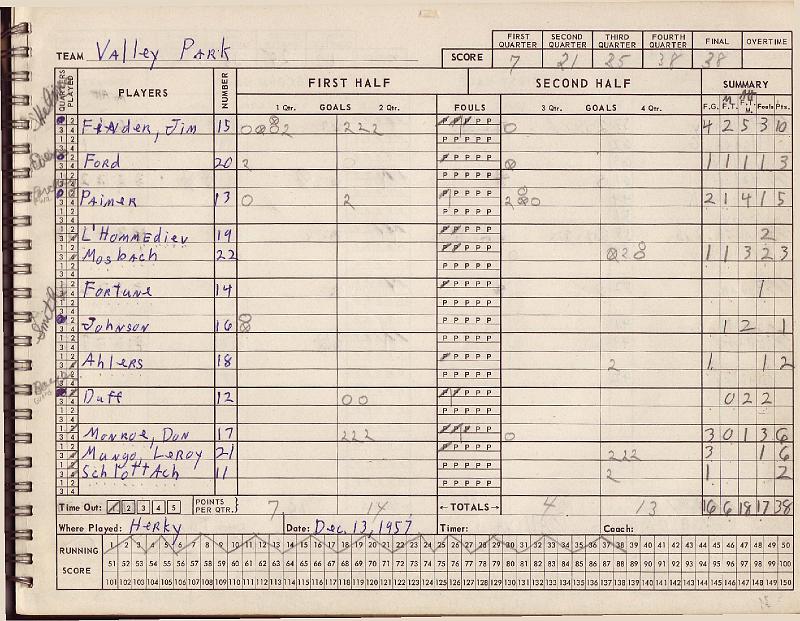 TEAM Valley Park
SCORE
FIRST QUARTER SECOND QUARTER THIRD QUARTER FOURTH QUARTER FINAL OVERTIME
7 21 25 38 38
QUARTERS PLAYED PLAYERS NUMBER FIRST HALF SECOND HALF SUMMARY
1 Qtr. GOALS 2 Qtr. FOULS 3 Qtr. GOALS 4 Qtr. F.G. F.T. F.T. M. Fouls Pts.
Finder, Jim 15 2 222 P P 4 2 5 3 10
Ford 20 2 P P P P 1 1 1 1 3
Palmer 13 0 2 P P P P 2 1 4 1 5
L'Hommediev 19 P P P 2
Mosbach 22 P P P 1 1 3 2 3
Fortune 14 P P P P 1
Johnson 16 P P P P P 1 2 1
Ahlers 18 P P P P 2 1 1 2
Duff 12 00 P P P 0 2 2
Monroe, Don 17 222 P P 0 3 0 1 3 6
Mungo, LeRoy 21 P P P P 222 3 1 6
Schlottach 11 P P P P P 2 1 2
Time Out: 1 2 3 4 5 POINTS PER QTR. 7 14 ←TOTALS→ 4 13 16 6 18 17 38
Where Played: Herky Date: Dec. 13, 1957 Timer: Coach:
RUNNING SCORE
1 2 3 4 5 6 7 8 9 10 11 12 13 14 15 16 17 18 19 20 21 22 23 24 25 26 27 28 29 30 31 32 33 34 35 36 37 38 39 40 41 42 43 44 45 46 47 48 49 50
51 52 53 54 55 56 57 58 59 60 61 62 63 64 65 66 67 68 69 70 71 72 73 74 75 76 77 78 79 80 81 82 83 84 85 86 87 88 89 90 91 92 93 94 95 96 97 98 99 100
101 102 103 104 105 106 107 108 109 110 111 112 113 114 115 116 117 118 119 120 121 122 123 124 125 126 127 128 129 130 131 132 133 134 135 136 137 138 139 140 141 142 143 144 145 146 147 148 149 150